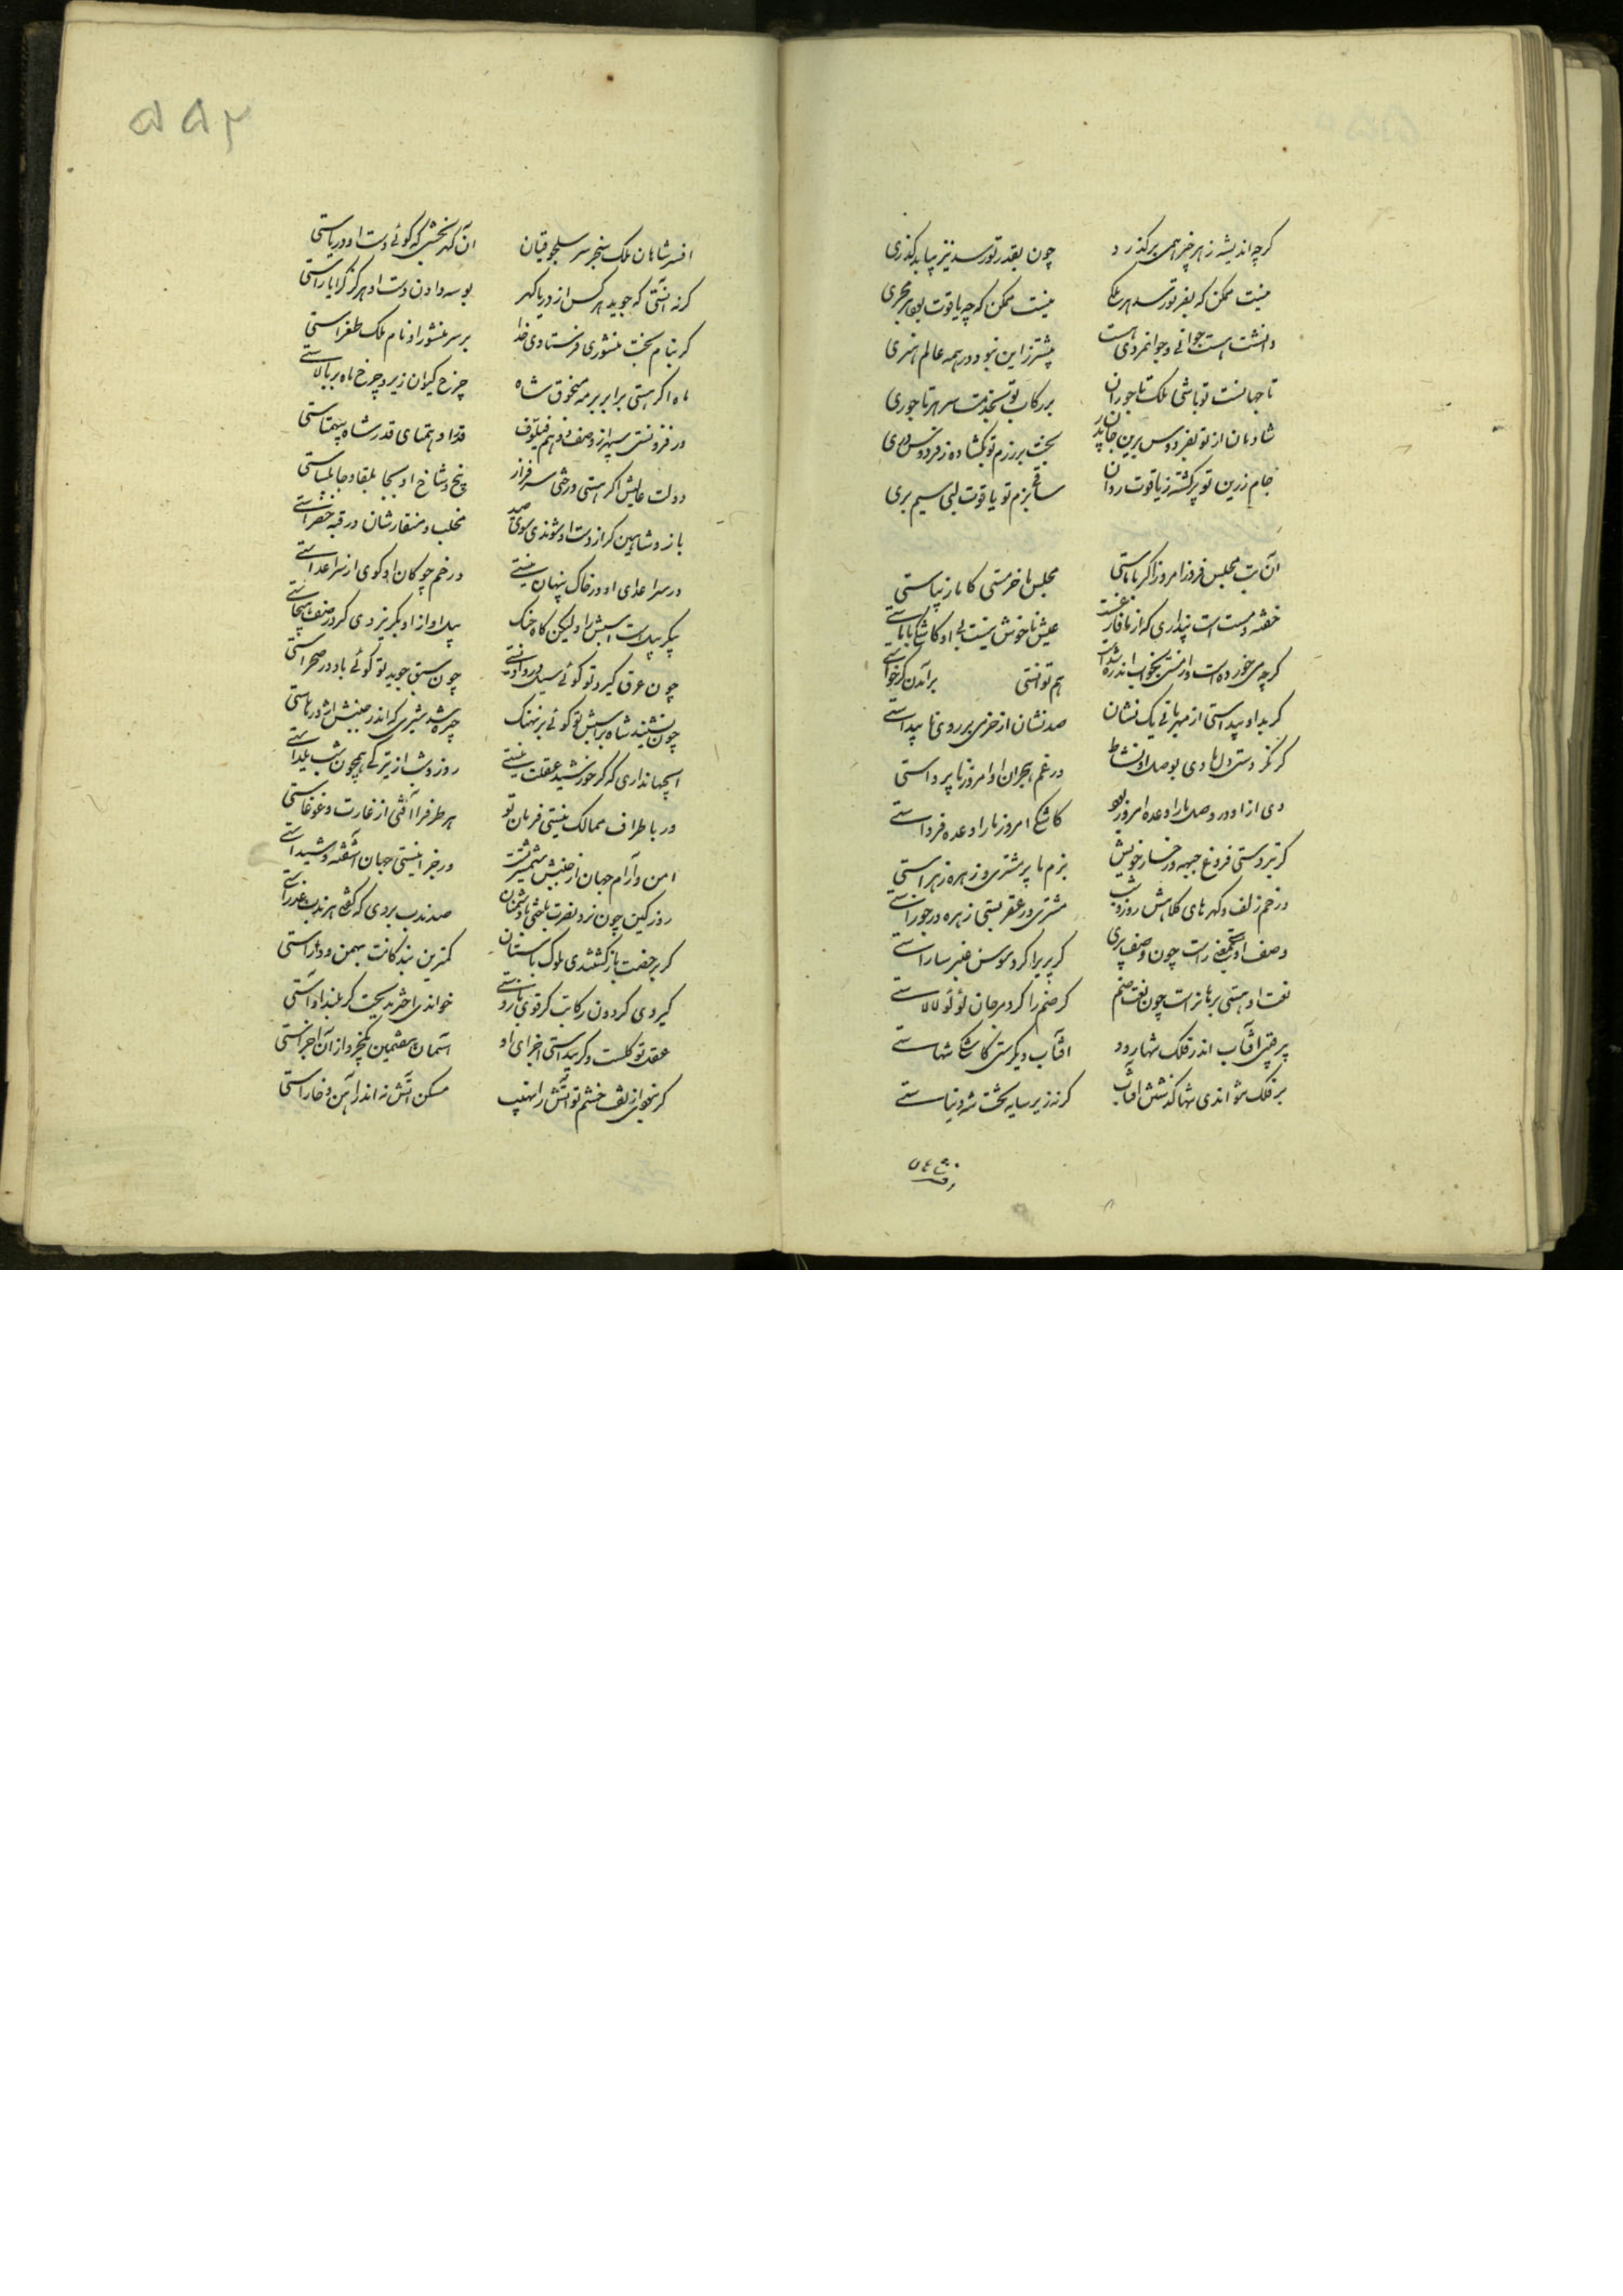 کرچه اندیشه ز هر چیز همی برکذرد چون بقدر تو رسد نیز نیابد کذری
نیست ممکن که بفر تو رسد هر ملکی نیست ممکن که چو یاقوت بود هر حجری
دانشت هست جوانی و جوانمردی هست پیشتر زاین نبود در همه عالم هنری
تا جهانست تو باشی ملک تاجوران بر رکاب تو بخدمت سر هر تاجوری
شادمان از تو بفردوس برین جان پدر بخت بر رزم تو بکشاده ز فردوس دری
جام زرین تو پر کشته ز یاقوت روان ساقی بزم تو یاقوت لبی سیم بری
آن بت مجلس فروز امروز اکر با ماستی مجلس ما خرمستی کار ما زیباستی
خفته و مست است پنداری که از ما فارغست عیش ما خوش نیست بی او کاشکی با ماستی
کرچه می خورده است و از مستی بخواب اندر شده است هم توانستی برآمدن کر خواستی
کر بدو پیداستی از مهربانی یک نشان صد نشان از خرمی بر روی ما پیداستی
کر نکردستی دل ما دی بوصل او نشاط در غم هجران او امروز ناپرواستی
دی از او در وصل ما را وعده امروز بود کاشکی امروز ما را وعده فرداستی
کر نبردستی فروغ جبهه و رخسار خویش بزم ما پر مشتری و زهره زهراستی
در خم زلف و کهرهای کلاهش روز و شب مشتری در عقربستی زهره در جوزاستی
وصف او مستیی راست چون وصف پری کر پری را کرد سوسن عنبر ساراستی
نعت او هستی بر ما راست چون نعت صنم کر صنم را کرد مرجان لؤلؤ لالاستی
پر فتی آفتاب اندر فلک تنها رود آفتاب دیکرستی کاشکی تنهاستی
بر فلک نتواندی تنها کذشتن آفتاب کر نه زیر سایه تخت شه دنیاستی
افسر شاهان ملک سنجر سر سلجوقیان آن کهر بخشی که کوئی دست او دریاستی
کر نه آنستی که جوید هر کس از دریا کهر بوسه دادن دست او هرکز کرا یاراستی
کر بنام بخت منشوری فرستادی خدا بر سر منشور او نام ملک طغراستی
ماه اکر هستی برابر بر مه منجوق شاه چرخ کیوان زیر و چرخ ماه بر بالاستی
ور فزونستی سپهر از وصف و وهم فیلسوف قد او همتای قدر شاه بیهمتاستی
دولت عالیش اکر هستی درختی سرفراز بیخ و شاخ او بجابلقا و جابلساستی
باز و شاهین کر از دست او شوندی سوی صید مخلب و منقارشان در قبه خضراستی
در سر اعدای او در خاک پنهان نیستی در خم چوکان او کوی از سر اعداستی
پیکر پیل است اسبش را ولیکن کاه جنک پیل او از او بکریزدی کر در صف هیجاستی
چون عرق کیرد تو کوئی سیل در وادیستی چون سبق جوید تو کوئی باد در صحراستی
چون نشیند شاه بر اسبش تو کوئی بر نهنک چیره شد شیری که اندر جنبش اژدرهاستی
ای جهانداری که کر خورشید عقلت نیستی روز و شب از تیرکی همچون شب یلداستی
ور باطراف ممالک نیستی فرمان تو هر طرف را آفتی از غارت و غوغاستی
امن و آرام جهان از جنبش شمشیر تست ور جز اینستی جهان آشفته و شیداستی
روز کین چون نرد نصرت باختی با دشمنان صد ندب بردی که کفتی هر ندب عذراستی
کر برجعت بازکشتندی ملوک باستان کمترین بندکانت بهمن و داراستی
کیردی کردون رکابت کر قوی بازوستی خواندی اختر مدیحت کر بلند آواستی
عقل تو کلست و کر پیداستی اجزای او آسمان هفتمین یکجزو از آن اجزاستی
کر نخوی از تف خشم تو آتش را نهیب مسکن آتش نه اندر آهن و خاراستی
افسر شاهان
۵۵۲